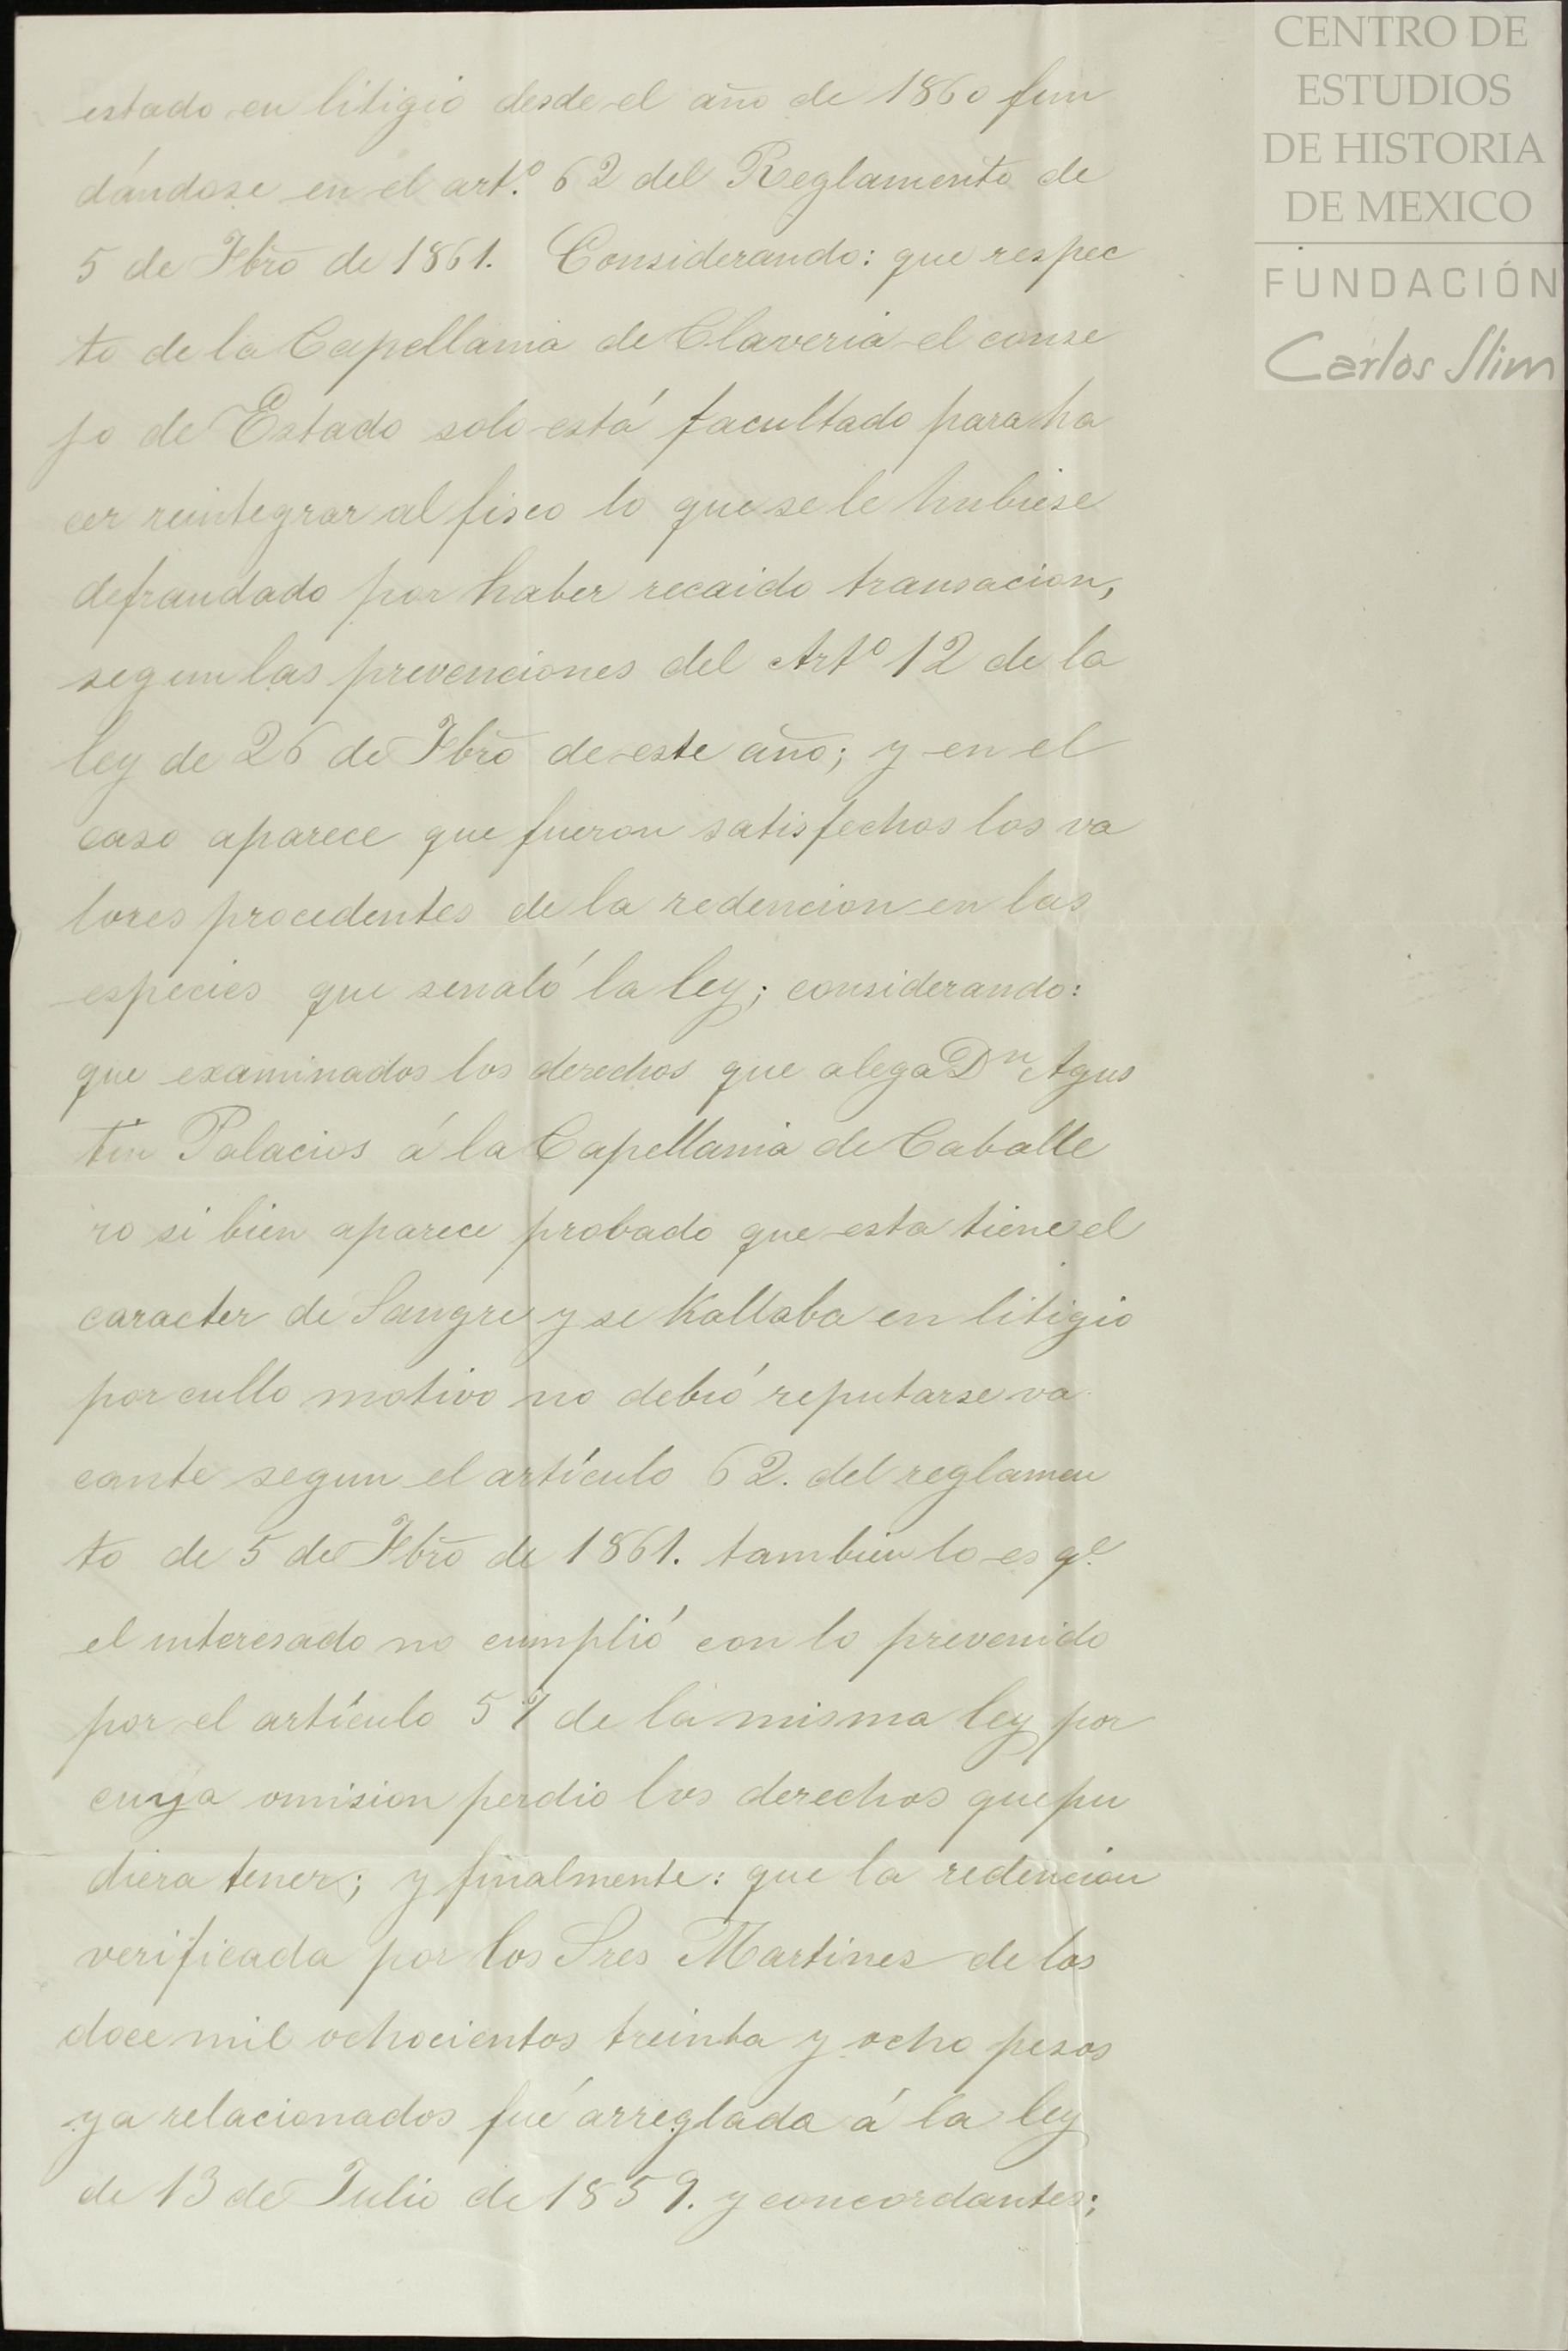 CENTRO DE
ESTUDIOS
DE HISTORIA
DE MEXICO
FUNDACIÓN
Carlos Slim
estado en litigio desde el año de 1860 fun
dándose en el art.º 62 del Reglamento de
5 de Fbrō de 1861. Considerando: que respec
to de la Capellania de Claveria el conse
jo de Estado solo está facultado para ha
cer reintegrar al fisco lo que se le hubiese
defraudado por haber recaido transacion,
segun las prevenciones del Artº 12 de la
ley de 26 de Fbrō de este año; y en el
caso aparece que fueron satisfechos los va
lores procedentes de la redencion en las
especies que senaló la ley; considerando:
que examinados los derechos que alega Dn Agus
tin Palacios á la Capellania de Caballe
ro si bien aparece probado que esta tiene el
caracter de Sangre y se hallaba en litigio
por cullo motivo no debió reputarse va
cante segun el artículo 62. del reglamen
to de 5 de Fbrō de 1861. tambien lo es qe.
el interesado no cumplió con lo prevenido
por el artículo 57 de la misma ley por
cuya omision perdio los derechos que pu
diera tener; y finalmente: que la redencion
verificada por los Sres Martines de los
doce mil ochocientos treinta y ocho pesos
ya relacionados fué arreglada á la ley
de 13 de Julio de 1859. y concordantes;